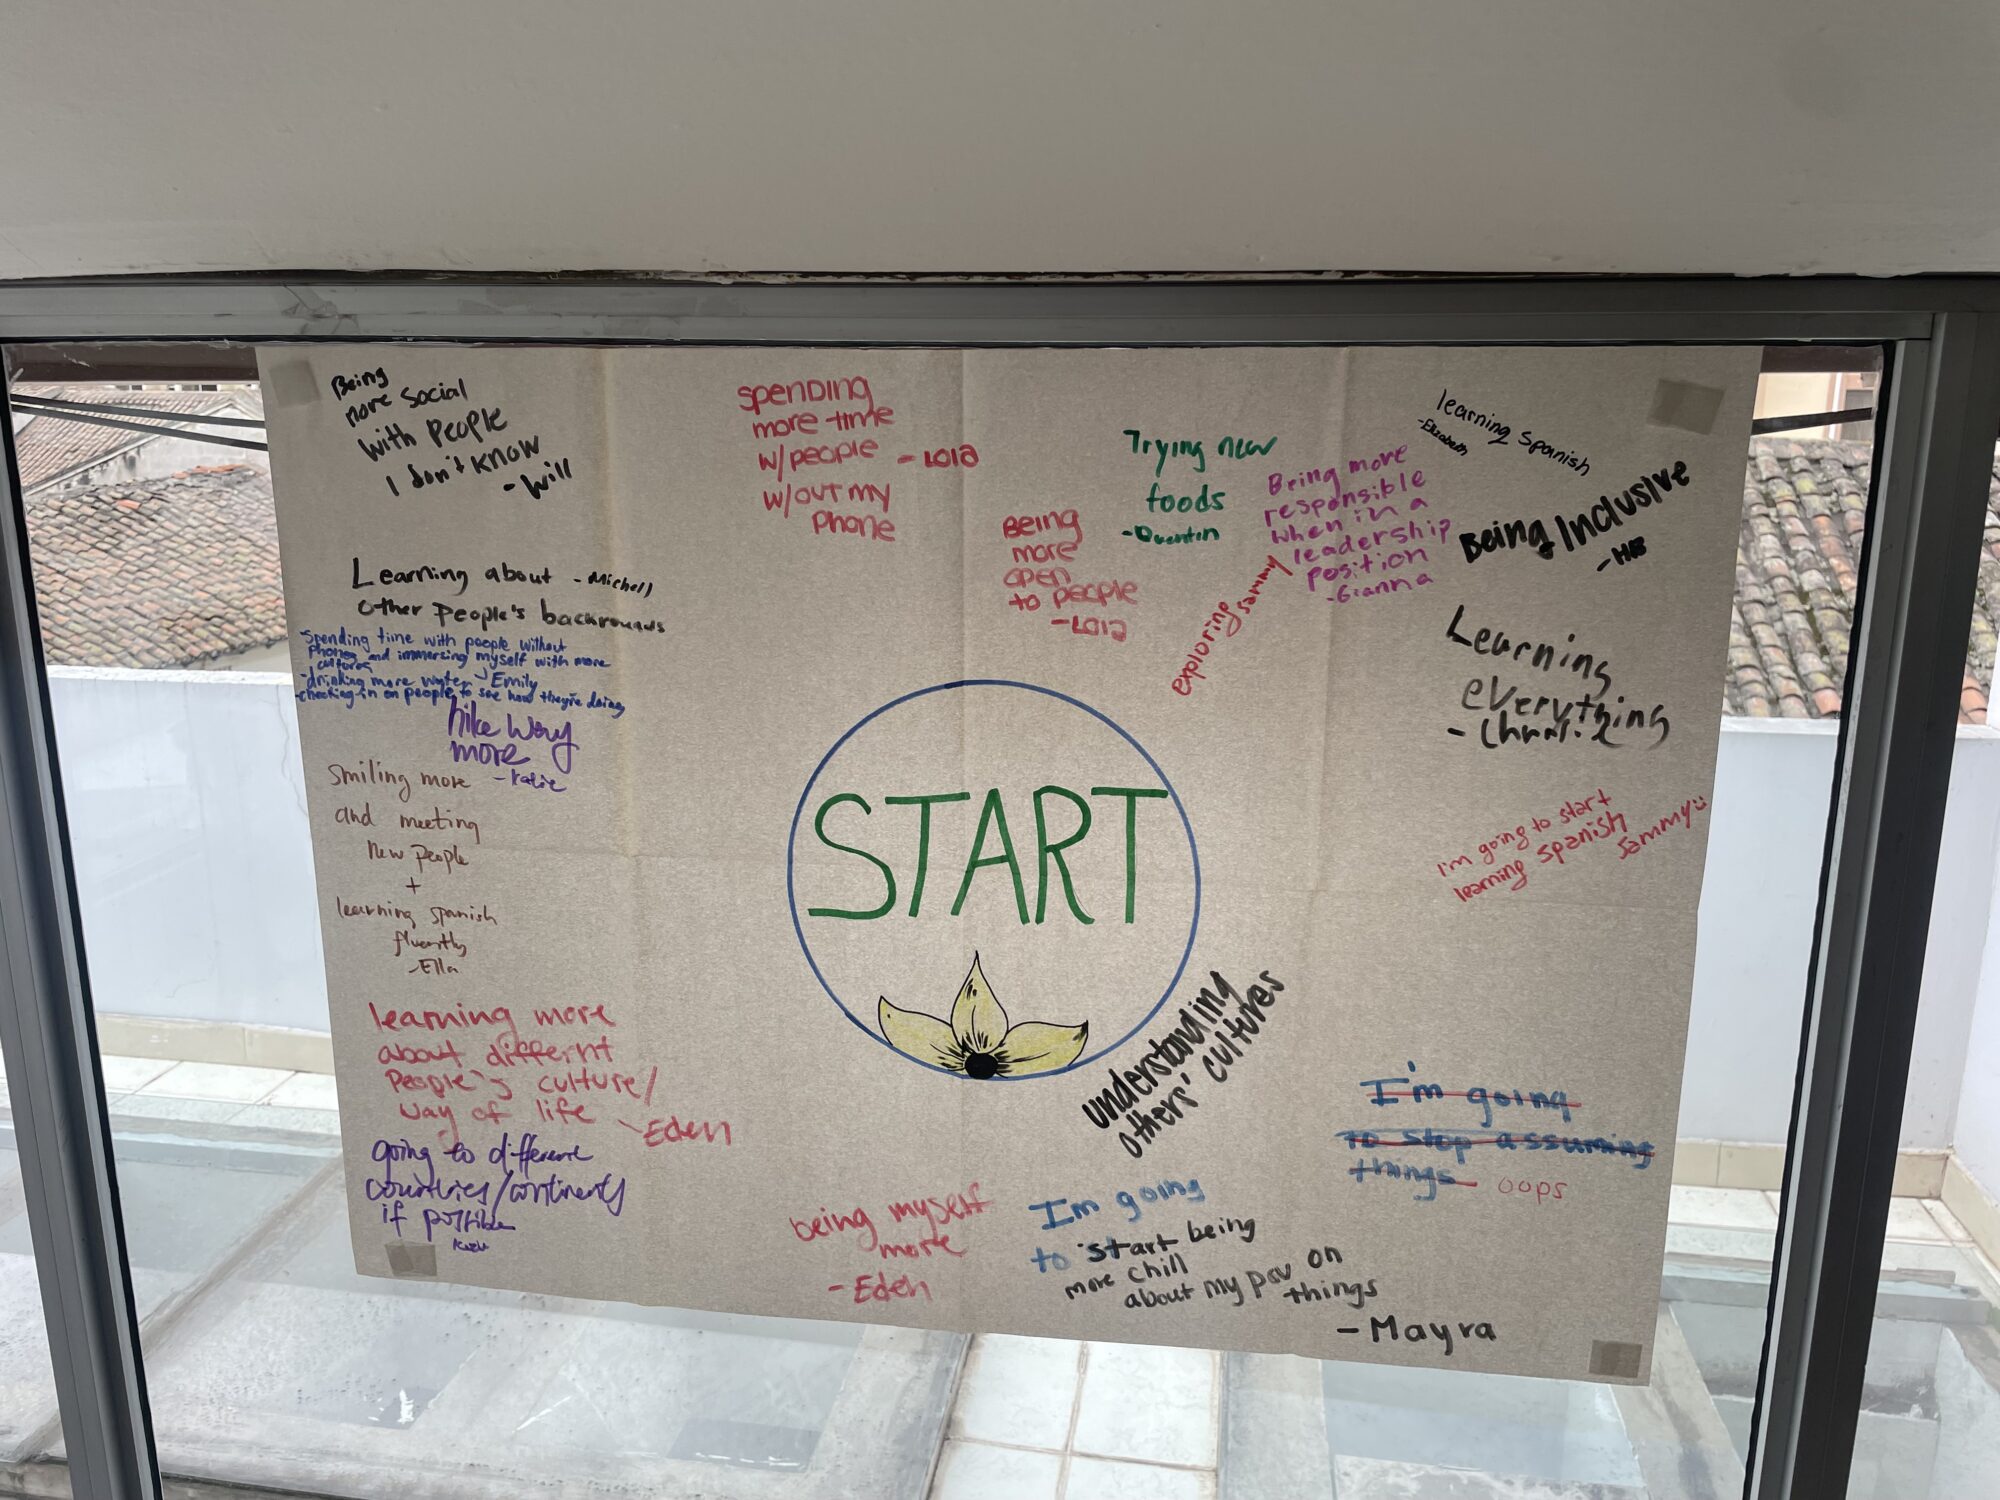 Being
more social
with people
I don't know
- Will
spending
more time
w/people - Lola
w/out my
phone
Trying new
foods
- Quentin
Being
more
open
to people
- Lola
Being more
responsible
when in a
leadership
position
- Gianna
exploring
Sammy
learning spanish
- Elizabeth
Being Inclusive
Learning
everything
Learning about - Michell
other people's backrounds
- spending time with people without
phones and immersing myself with more
cultures
- drinking more water - Emily
- checking-in on people to see how they're doing
hike way
more
- Katie
smiling more
and meeting
new people
+
learning spanish
fluently
- Ella
START
I'm going to start
learning spanish
Sammy
learning more
about differnt
people's culture/
way of life
- Eden
going to different
countries/continents
if possible
understanding
others' cultures
I'm going
to stop assuming
things oops
being myself
more
- Eden
I'm going
to start being
more chill
about my pov on
things
- Mayra